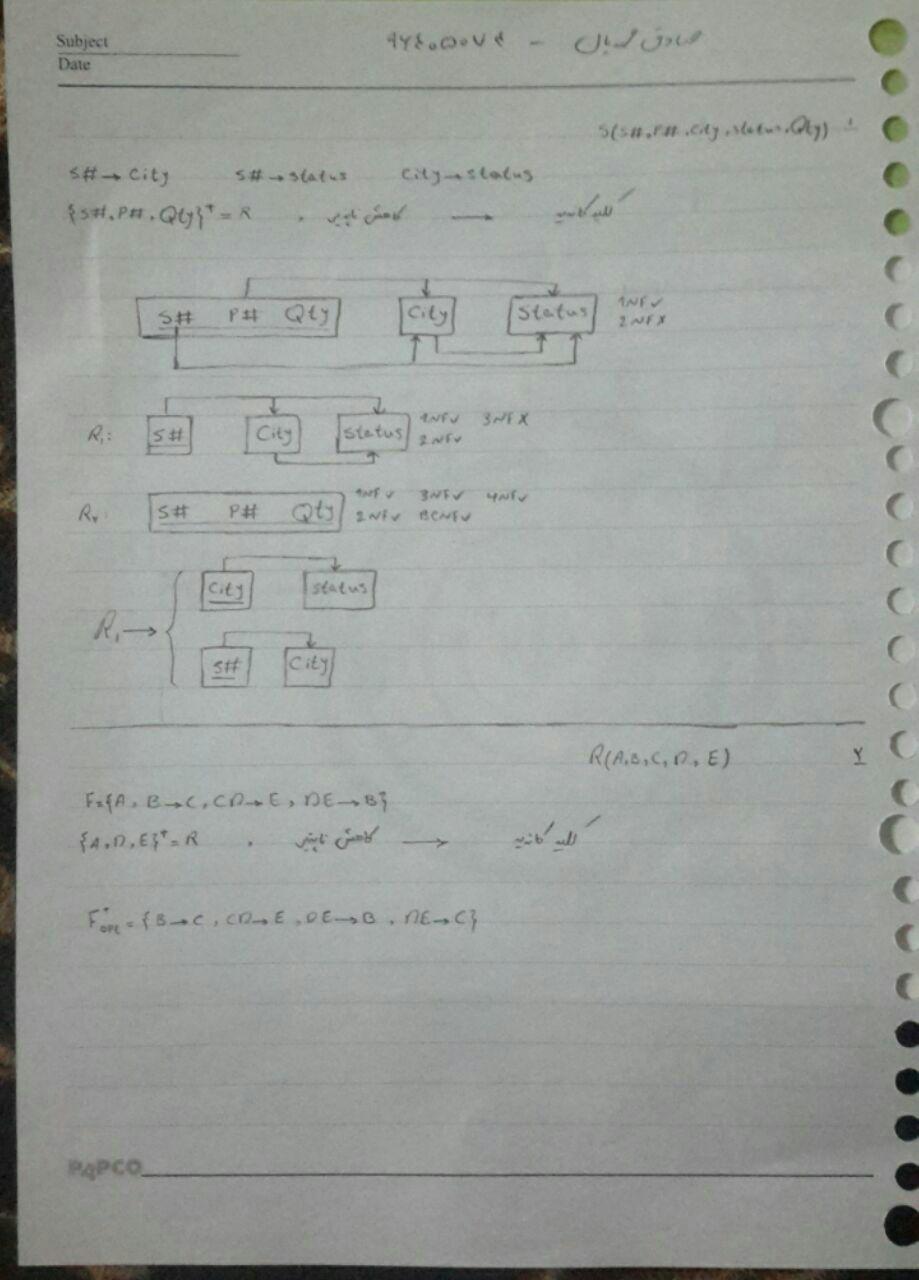 Subject
Date
صادق - ۹۶۴۰۵۰۷۴
S(S#,P#,City,Status,Qty) ۱
S#→City S#→Status City→Status
{S#,P#,Qty}⁺=R , کاهش ناپذیر → کلید کاندید
S# P# Qty City Status 1NF✓
2NF✗
R₁: S# City Status 1NF✓ 3NF✗
2NF✓
R₂: S# P# Qty 1NF✓ 3NF✓ 4NF✓
2NF✓ BCNF✓
City Status
R₁→{
S# City
R(A,B,C,D,E) ۲
F={A, B→C, CD→E, DE→B}
{A,D,E}⁺=R , کاهش ناپذیر → کلید کاندید
F⁺opt={B→C, CD→E, DE→B, DE→C}
PAPCO